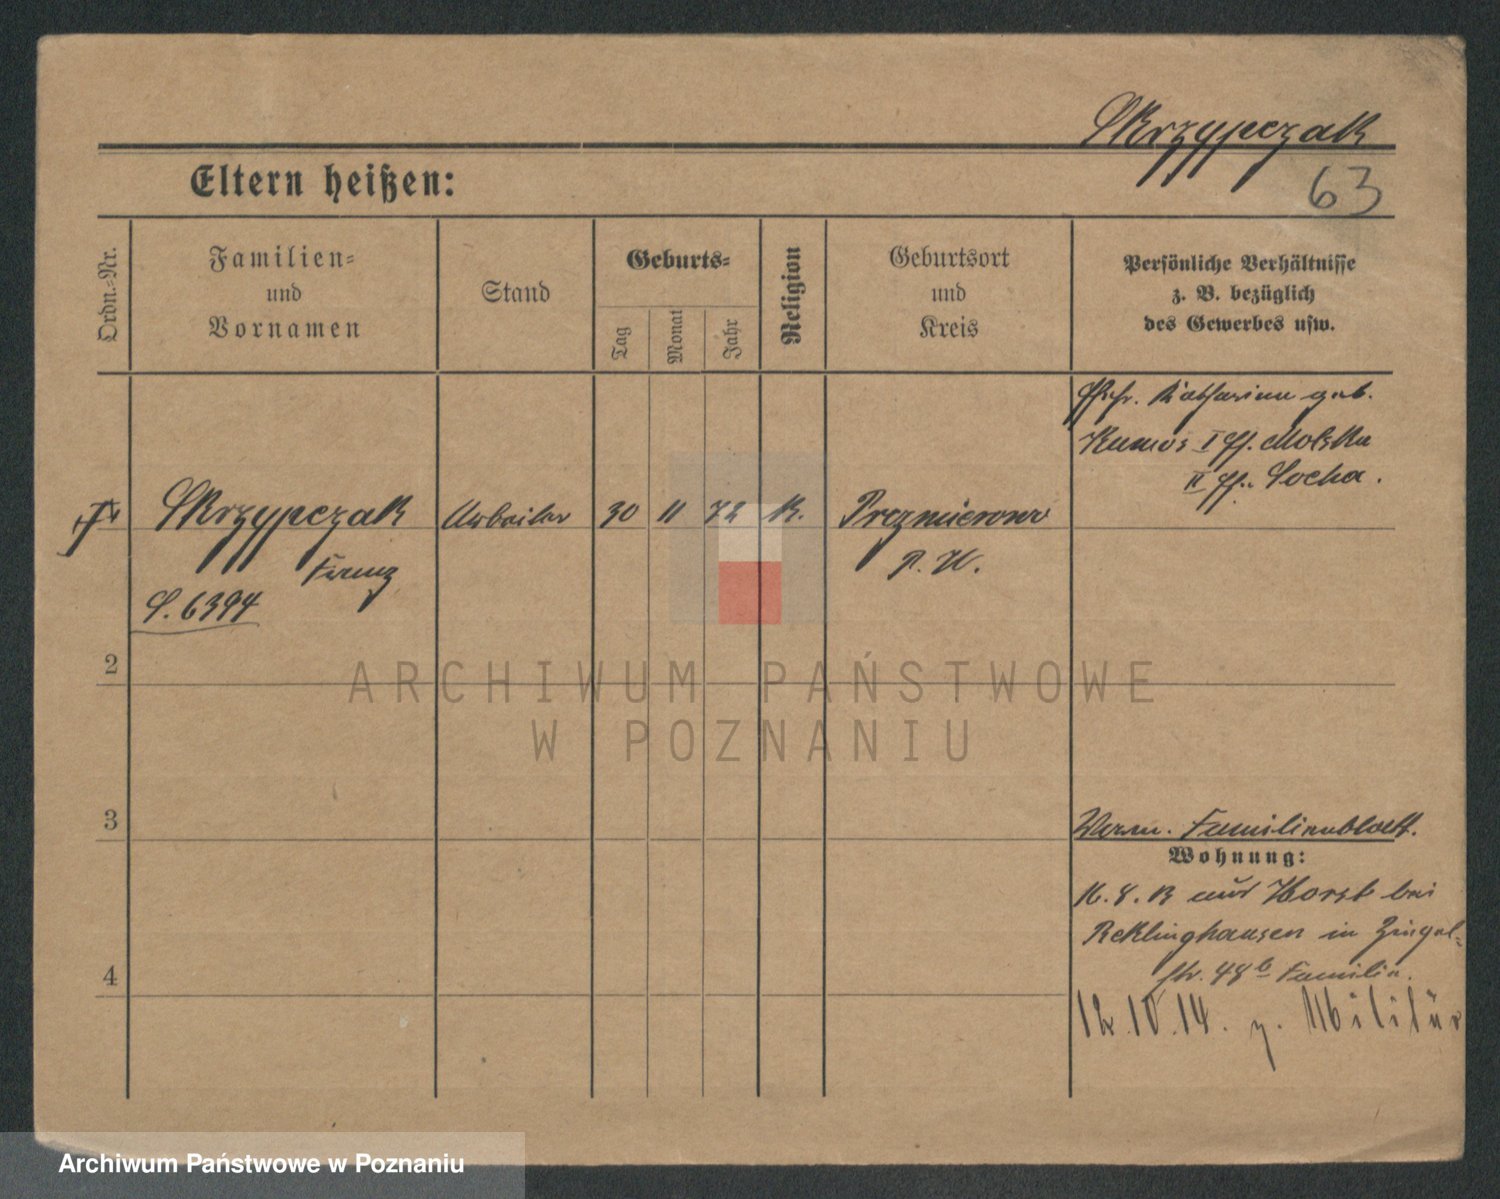 Skrzypczak
63
Eltern heißen:
Ordn.-Nr.
Familien-
und
Vornamen
Stand
Geburts-
Tag
Monat
Jahr
Religion
Geburtsort
und
Kreis
Persönliche Verhältnisse
z. B. bezüglich
des Gewerbes usw.
Ehefr. Katharina geb.
I Eh. Molska
II Eh. Socha.
Skrzypczak
Arbeiter
30
11
72
K.
Przezmierowo
Franz
P. W.
S. 6394
2
ARCHIWUM PAŃSTWOWE
W POZNANIU
3
Familienblatt.
Wohnung:
16. 8. 13 aus Horst bei
Recklinghausen in
str. 48 b Familie.
4
12.10.14. z. Militär
Archiwum Państwowe w Poznaniu